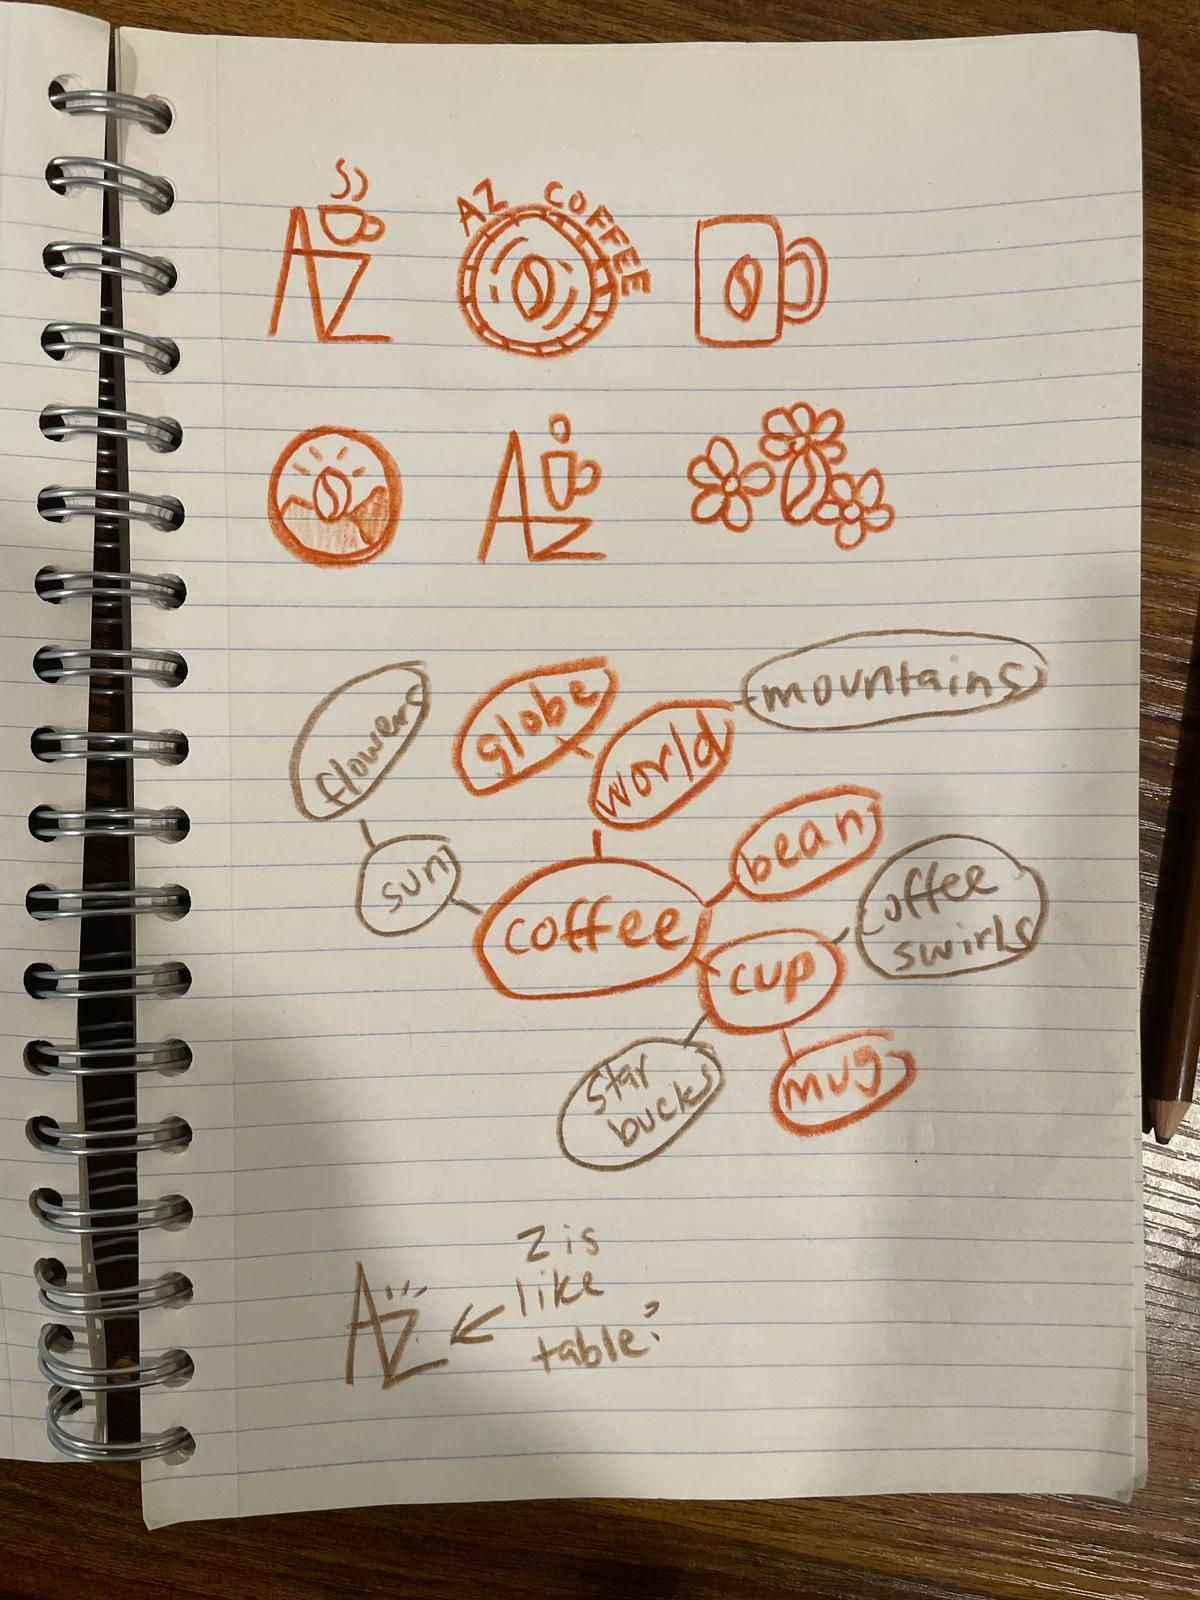 AZ
AZ COFFEE
AZ
flowers
globe
world
mountains
sun
coffee
bean
cup
coffee
swirls
star
bucks
mug
AZ
Z is
like
table?